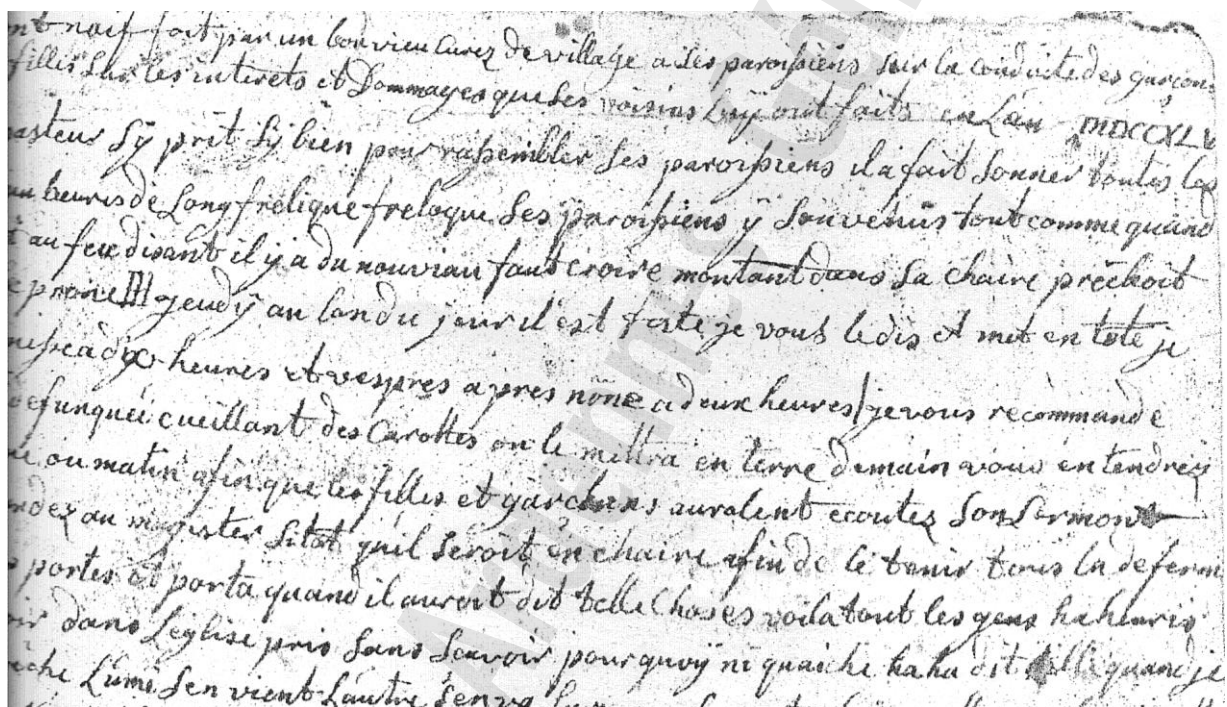 naif fait par un bon vieu Curez de village a Ses paroissiens sur la conduite des garçon
filles Sur les interets et Dommages que Ses voisins luy ont faits en Lan MDCCXLV
pasteur Sÿ prit Sÿ bien pour rassembler Ses paroissiens il a fait Sonner toutes les
de Long freligne freloque Ses paroissiens ÿ Son venus tout comme quand
au feu disant il y a du nouviau faut croire montant dans Sa chaire préchoit
prone jeudÿ an landu jour il est feste je vous le dis et met en tete je
a dix heures et vespres apres none a deux heures je vous recommande
defunquéé cueillant des Carottes on le mettra en terre demain vous entendrez
ou matin afin que les filles et garchons auralent écoutez Son Sermont
au magister Sitot quil Seroit en chaire afin de le tenir tous la deferm
portes et porta quand il auroit dit telle Choses voila tout les gens hahuris
dans Leglise pris Sans Scavoir pourquoÿ ni quaiche haha dit quand je
Lume Sen vient Lautre Sen va